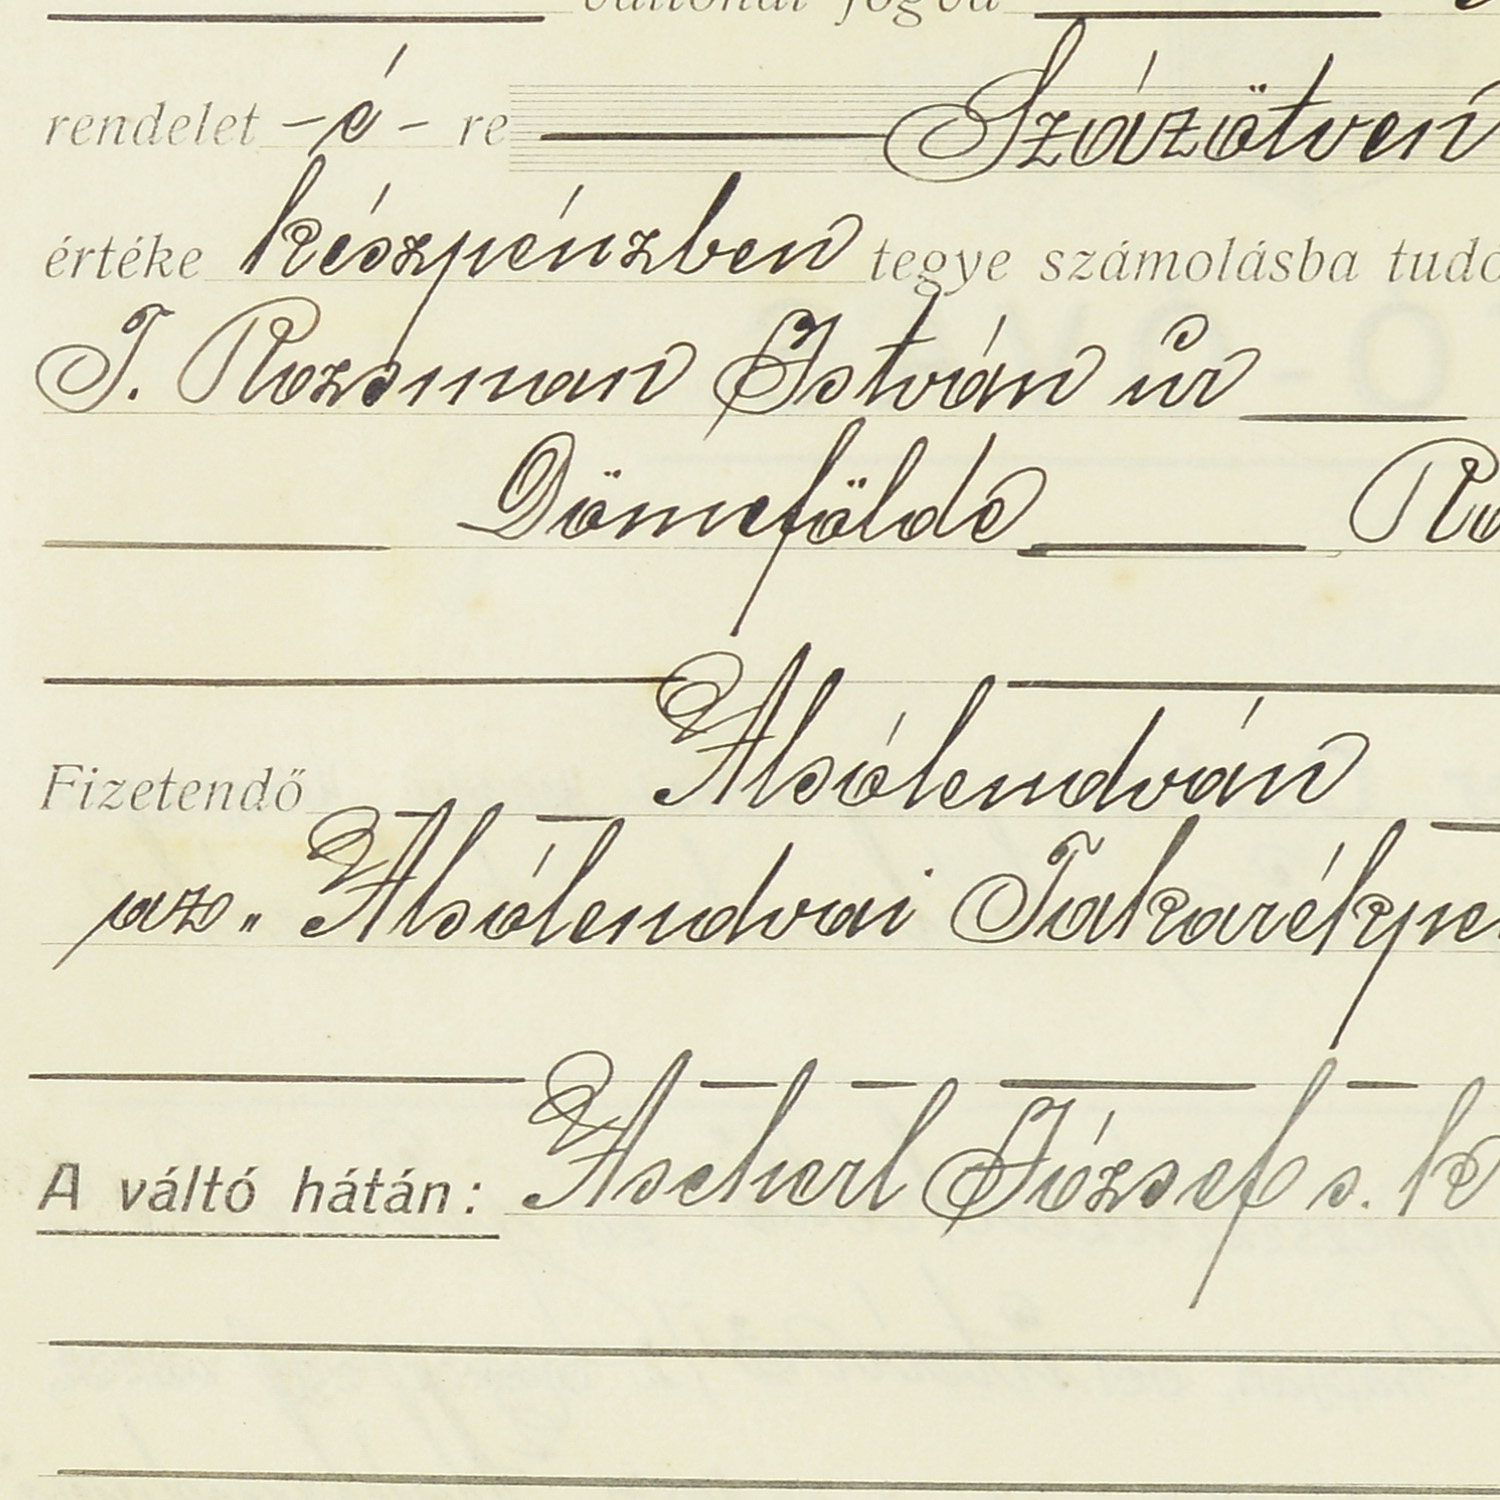 váltónál fogva
rendelet -é- re Százötven
értéke készpénzben tegye számolásba tudó
T. Rozsman István úr
Dömefölde
Fizetendő Alsólendván
az „Alsólendvai Takarékpé
A váltó hátán: Ascherl József s. k